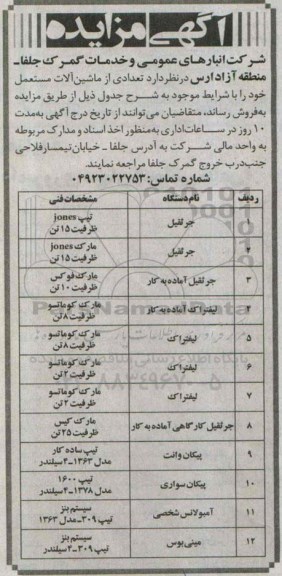 آگهی مزایده
شرکت انبارهای عمومی و خدمات گمرک جلفا-
منطقه آزاد ارس در نظر دارد تعدادی از ماشین‌آلات مستعمل
خود را با شرایط موجود به شرح جدول ذیل از طریق مزایده
به‌فروش رساند، متقاضیان می‌توانند از تاریخ درج آگهی به‌مدت
۱۰ روز در ساعات اداری به‌منظور اخذ اسناد و مدارک مربوطه
به واحد مالی شرکت به آدرس جلفا - خیابان نیمسار فلاحی
جنب درب خروج گمرک جلفا مراجعه نمایند.
شماره تماس: ۰۴۹۲۳۰۲۲۷۵۳
ردیف نام دستگاه مشخصات فنی
۱ جرثقیل تیپ jones
ظرفیت ۱۵ تن
۲ جرثقیل مارک jones
ظرفیت ۱۵ تن
۳ جرثقیل آماده به کار مارک فوکس
ظرفیت ۱۰ تن
۴ لیفتراک آماده به کار مارک کوماتسو
ظرفیت ۸ تن
۵ لیفتراک مارک کوماتسو
ظرفیت ۸ تن
۶ لیفتراک مارک کوماتسو
ظرفیت ۲ تن
۷ لیفتراک مارک کوماتسو
ظرفیت ۲ تن
۸ جرثقیل کارگاهی آماده به کار مارک کیس
ظرفیت ۲۵ تن
۹ پیکان وانت تیپ ساده کار
مدل ۱۳۶۳-۴ سیلندر
۱۰ پیکان سواری تیپ ۱۶۰۰
مدل ۱۳۷۸-۴ سیلندر
۱۱ آمبولانس شخصی سیستم بنز
تیپ ۳۰۹-مدل ۱۳۶۳
۱۲ مینی‌بوس سیستم بنز
تیپ ۳۰۹-۴ سیلندر